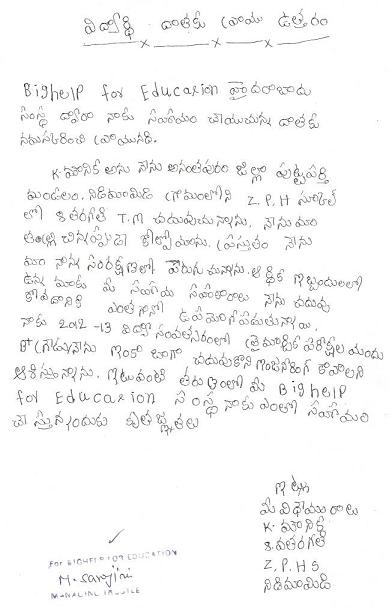 విద్యార్థి దాతకు వ్రాయు ఉత్తరం
Bighelp for Educasion హైదరాబాదు
సంస్థ ద్వారా నాకు సహాయం చేయుచున్న దాతకు
నమస్కరించి వ్రాయునది.
K. మౌనిక అను నేను అనంతపురం జిల్లా పుట్టపర్తి
మండలం. నిడిమామిడి గ్రామంలోని Z.P.H స్కూల్
లో 8 తరగతి T.M చదువుచున్నాను. నేను మా
తండ్రి చిన్నప్పుడే కోల్పోయాను. ప్రస్తుతం నేను
మా నాన్న సంరక్షణలో పెరుగుచున్నాను. ఆర్థిక ఇబ్బందులలో
ఉన్న మాకు మీ సహాయ సహకారాలు నేను చదువు
కోవడానికి ఎంతగానో ఉపయోగపడుతున్నాయి.
నాకు 2012-13 విద్యా సంవత్సరంలో త్రైమాసిక పరీక్షల యందు
B+ గ్రేడు నేను ఇంకా బాగా చదువుకొని ఇంజనీరింగ్ కావాలని
ఆశిస్తున్నాను. ఇటువంటి తరుణంలో మీ Bighelp
for Educasion సంస్థ నాకు ఎంతో సహాయం
చేస్తున్నందుకు కృతజ్ఞతలు
ఇట్లు
మీ విధేయురాలు
K. మౌనిక
8వ తరగతి
Z.P.H.S
నిడిమామిడి
For BIGHELP FOR EDUCATION
M. Sarojini